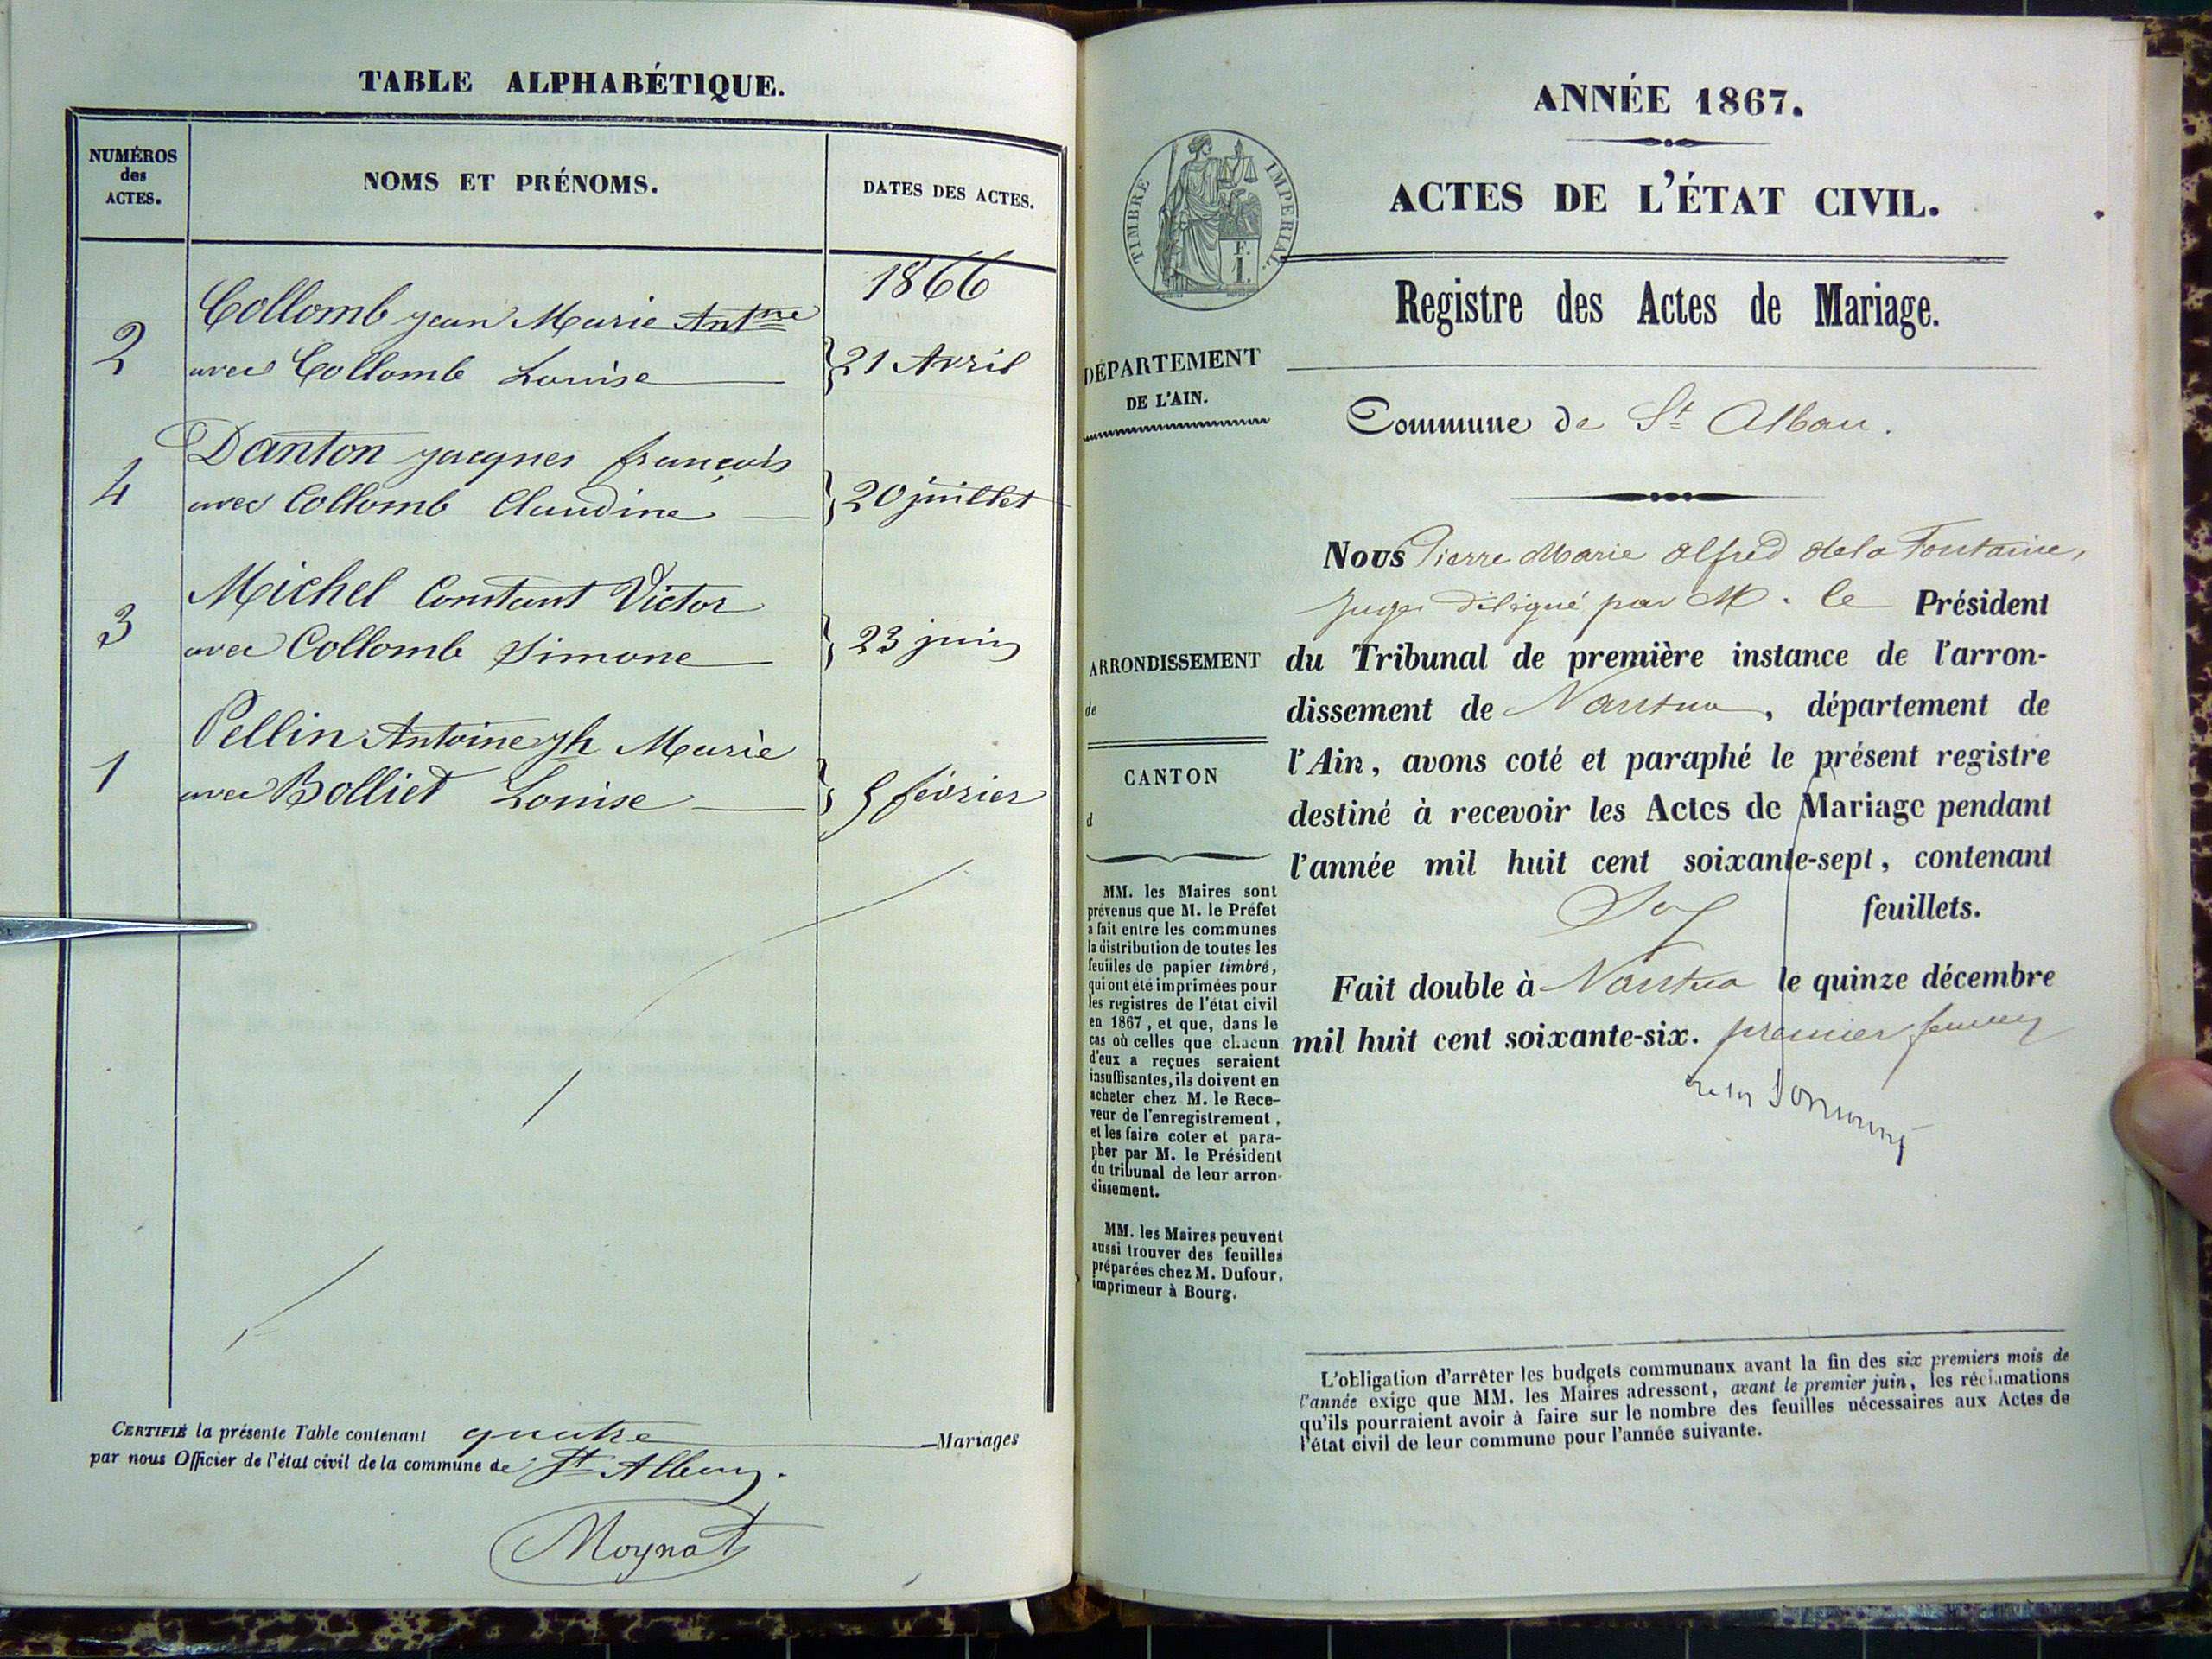 TABLE ALPHABÉTIQUE.
NUMÉROS
des
ACTES.
NOMS ET PRÉNOMS.
DATES DES ACTES.
1866
Collomb jean Marie Antne
2 avec Collomb Louise } 21 Avril
Danton jacques françois
4 avec Collomb Claudine } 20 juillet
Michel Constant Victor
3 avec Collomb Simone } 23 juin
Pellin Antoine jh Marie
1 avec Bolliet Louise } 5 février
CERTIFIÉ la présente Table contenant quatre Mariages
par nous Officier de l'état civil de la commune de St Alban.
Moynat
ANNÉE 1867.
TIMBRE IMPERIAL.
F.
1.
ACTES DE L'ÉTAT CIVIL.
Registre des Actes de Mariage.
DÉPARTEMENT
DE L'AIN.
Commune de St Alban.
Nous Pierre Marie Alfred de la Fontaine,
Juge délégué par M. le Président
du Tribunal de première instance de l'arron-
dissement de Nantua, département de
l'Ain, avons coté et paraphé le présent registre
destiné à recevoir les Actes de Mariage pendant
l'année mil huit cent soixante-sept, contenant
feuillets.
Fait double à Nantua le quinze décembre
mil huit cent soixante-six. premier
ARRONDISSEMENT
de
CANTON
d
MM. les Maires sont
prévenus que M. le Préfet
a fait entre les communes
la distribution de toutes les
feuilles de papier timbré,
qui ont été imprimées pour
les registres de l'état civil
en 1867, et que, dans le
cas où celles que chacun
d'eux a reçues seraient
insuffisantes, ils doivent en
acheter chez M. le Rece-
veur de l'enregistrement,
et les faire coter et para-
pher par M. le Président
du tribunal de leur arron-
dissement.
MM. les Maires peuvent
aussi trouver des feuilles
préparées chez M. Dufour,
imprimeur à Bourg.
L'obligation d'arrêter les budgets communaux avant la fin des six premiers mois de
l'année exige que MM. les Maires adressent, avant le premier juin, les réclamations
qu'ils pourraient avoir à faire sur le nombre des feuilles nécessaires aux Actes de
l'état civil de leur commune pour l'année suivante.